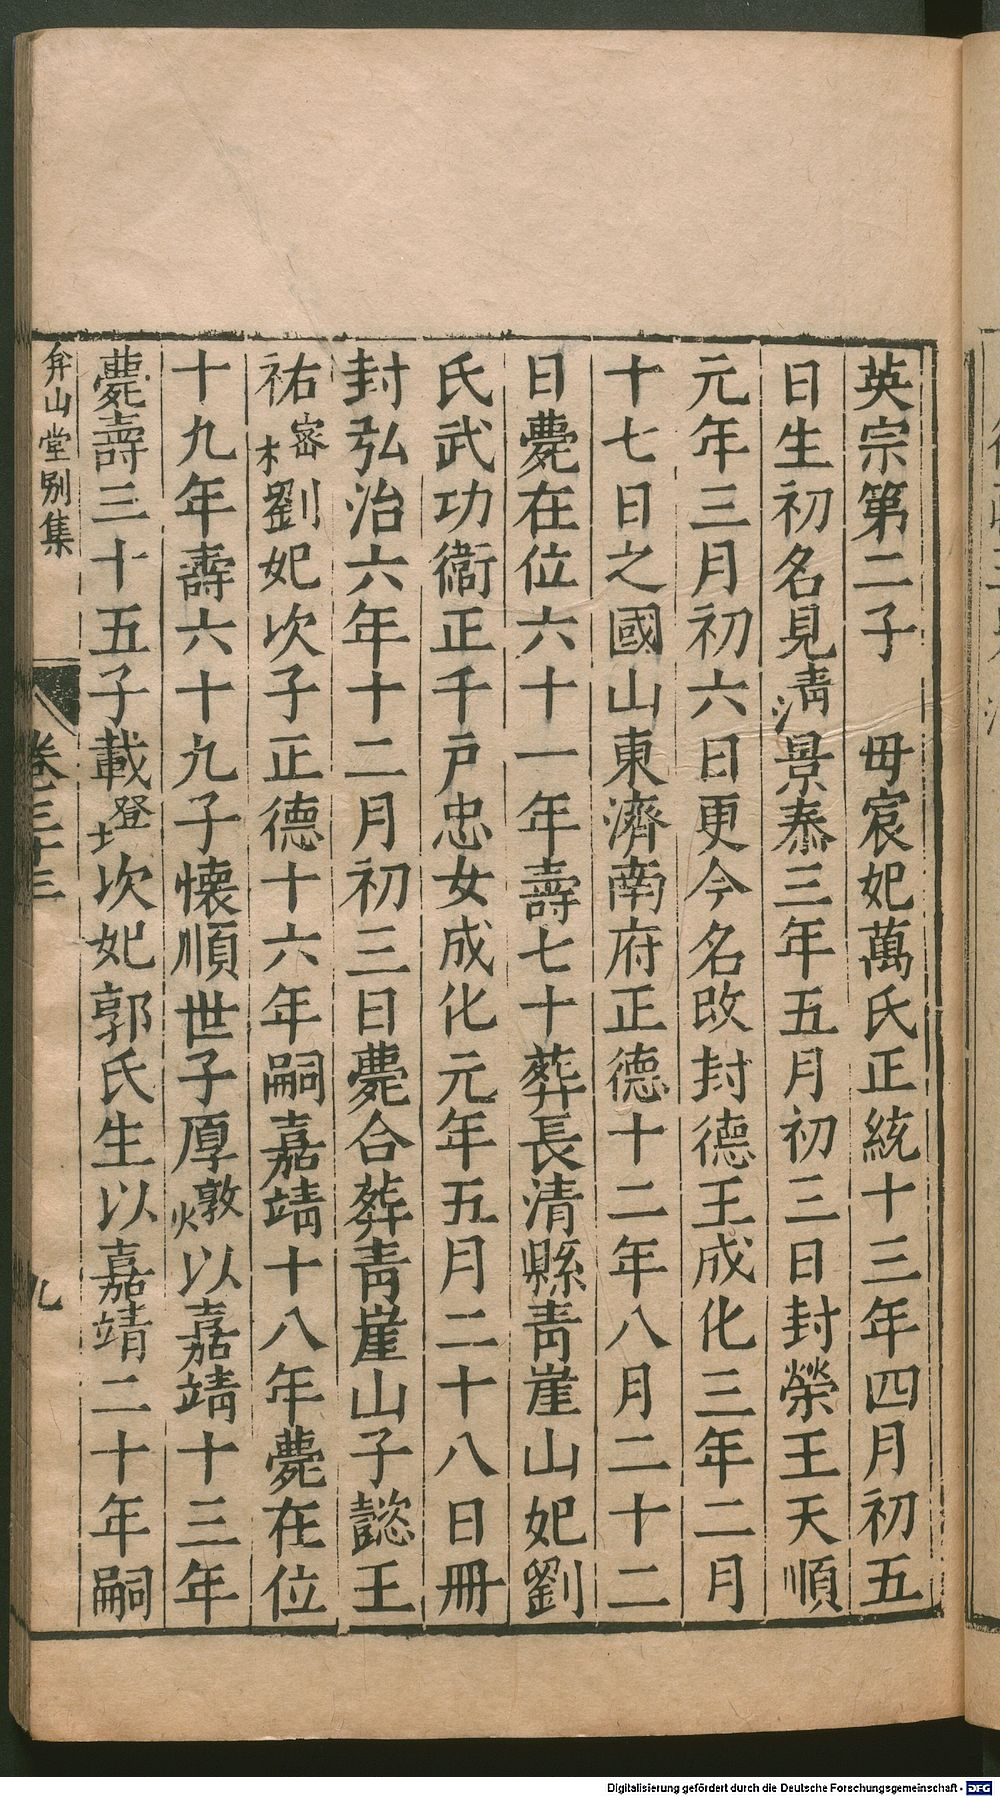 英宗第二子　母宸妃萬氏正統十三年四月初五
日生初名見清景泰三年五月初三日封榮王天順
元年三月初六日更今名改封德王成化三年二月
十七日之國山東濟南府正德十二年八月二十二
日薨在位六十一年壽七十葬長清縣青崖山妃劉
氏武功衞正千戶忠女成化元年五月二十八日冊
封弘治六年十二月初三日薨合葬青崖山子懿王
祐密木劉妃次子正德十六年嗣嘉靖十八年薨在位
十九年壽六十九子懷順世子厚敦火以嘉靖十三年
薨壽三十五子載登土次妃郭氏生以嘉靖二十年嗣
弇山堂別集
卷三十三
九
Digitalisierung gefördert durch die Deutsche Forschungsgemeinschaft - DFG